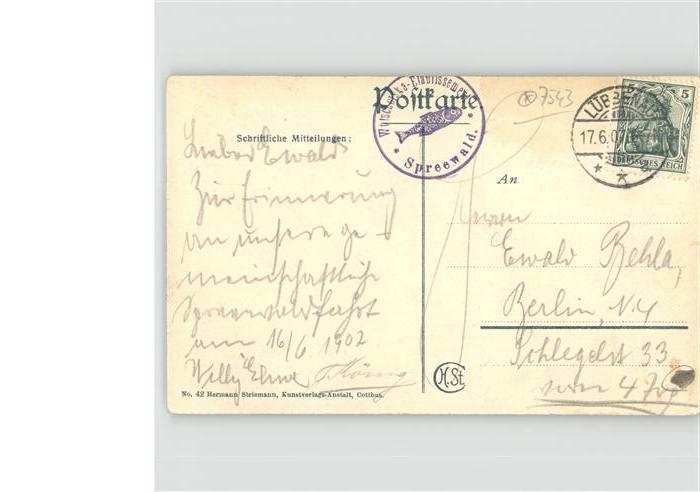 Postkarte
Wotschofska-Etablissement
* Spreewald. *
7543
LÜBBENAU
17.6.07
DEUTSCHES REICH
5
Schriftliche Mitteilungen:
Lieber Ewald
Zur Erinnerung
an unsere ge-
meinschaftliche
Spreewaldfahrt
am 16/6. 1902
Willy
An
Herrn
Ewald Behla,
Berlin, N4
Schlegelst 33
vorn 4
H.St.
No. 42 Hermann Striemann, Kunstverlags-Anstalt, Cottbus.